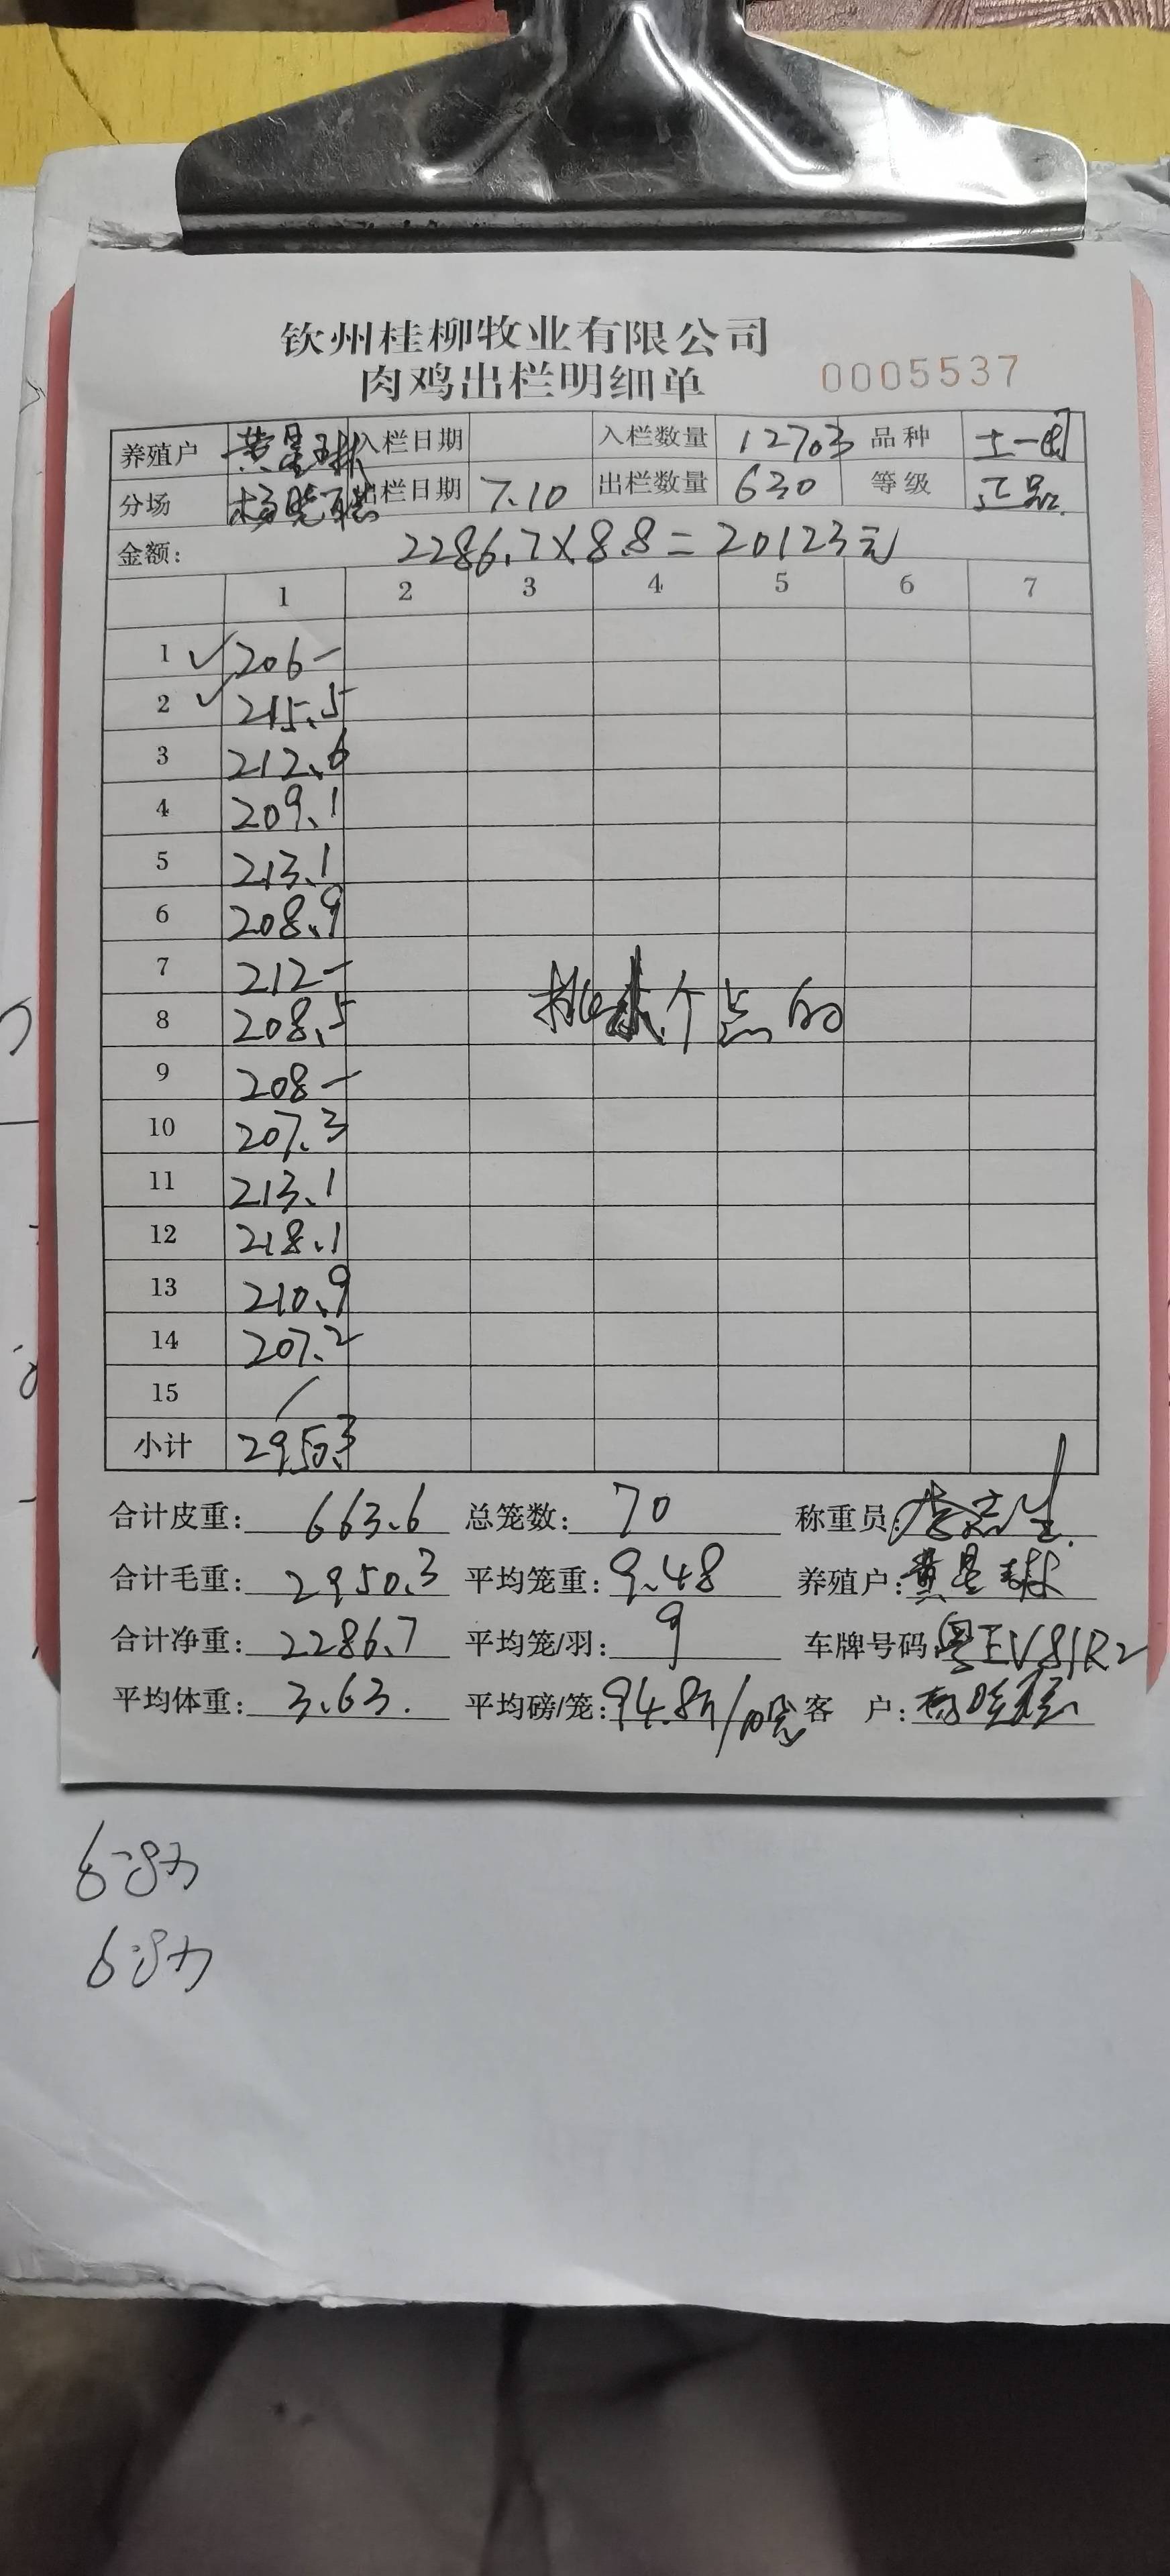 钦州桂柳牧业有限公司
肉鸡出栏明细单 0005537
养殖户 黄星球 入栏日期 入栏数量 12703 品种 土一
分场 杨晓 出栏日期 7.10 出栏数量 630 等级 正品
金额: 2286.7×8.8=20123元
1 2 3 4 5 6 7
1 ✓ 206-
2 ✓ 215.5
3 212.6
4 209.1
5 213.1
6 208.9
7 212-
8 208.5 挑 个 点的
9 208-
10 207.3
11 213.1
12 218.1
13 210.9
14 207.2
15 /
小计 2950.3
合计皮重: 663.6 总笼数: 70 称重员: 李志生
合计毛重: 2950.3 平均笼重: 9.48 养殖户: 黄星球
合计净重: 2286.7 平均笼/羽: 9 车牌号码: 粤EV81R2
平均体重: 3.63. 平均磅/笼: 94.8斤/10笼 客 户: